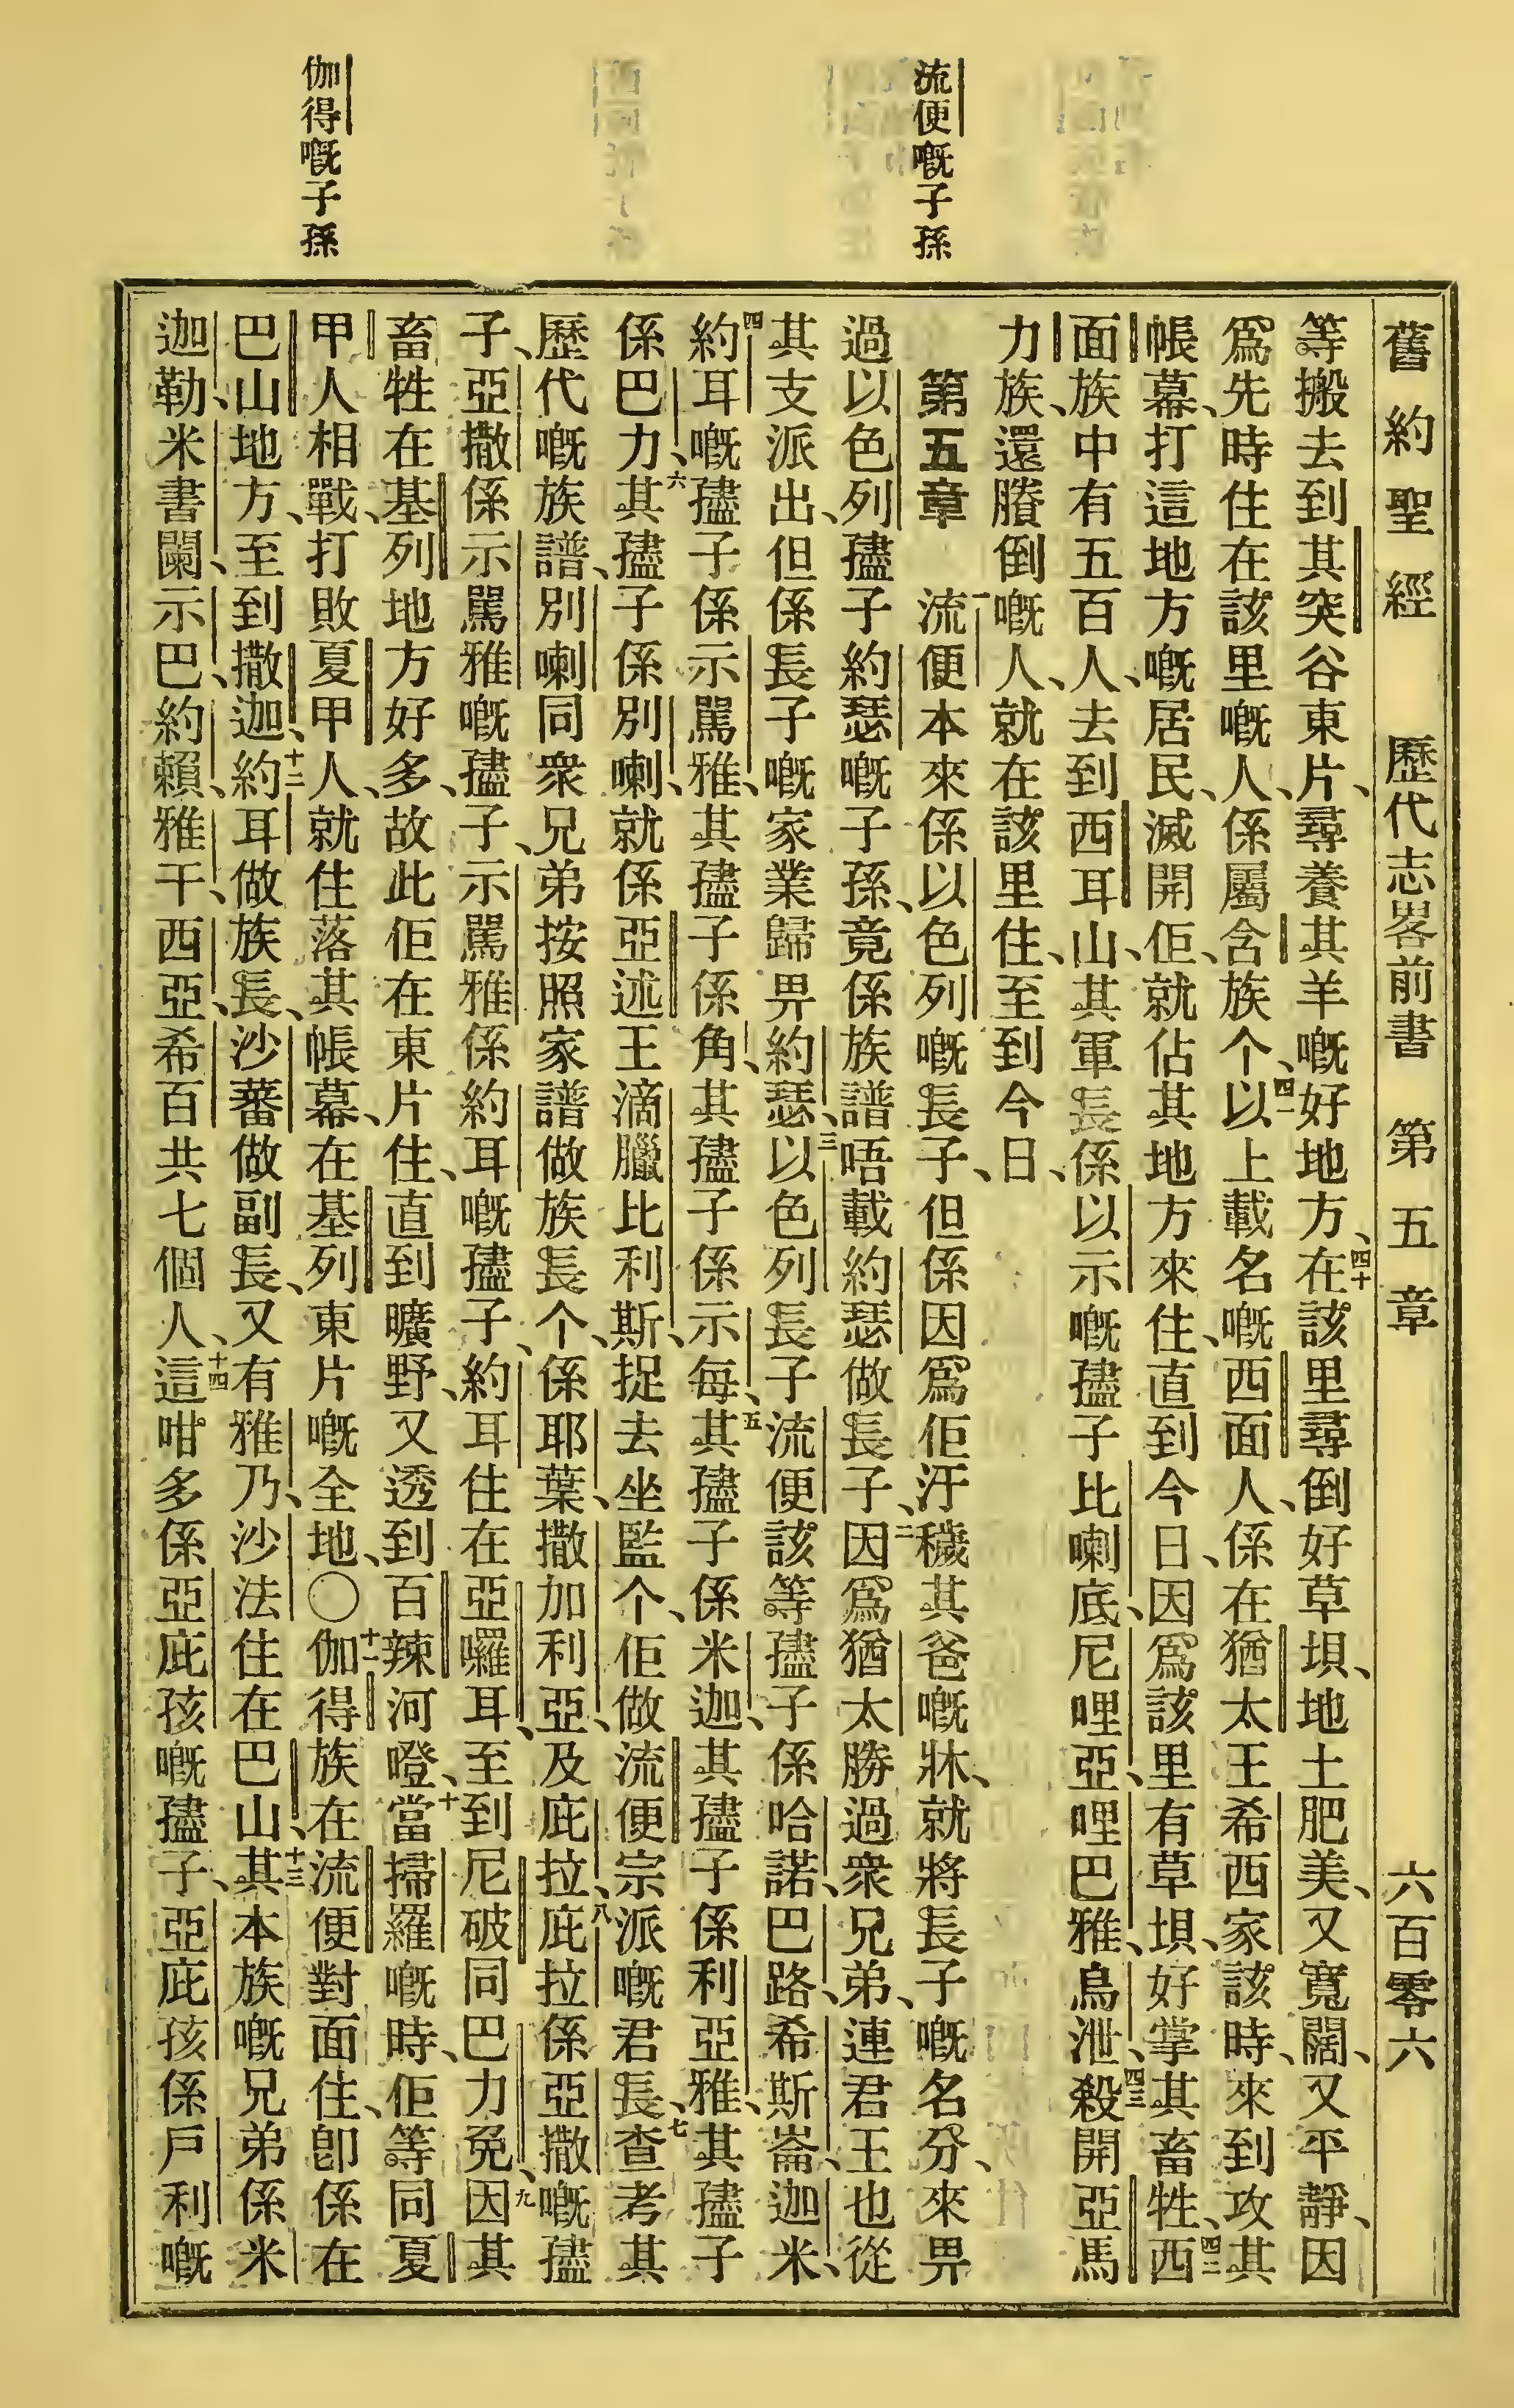 舊約聖經　歷代志畧前書　第五章　六百零六
等搬去到其突谷東片、尋養其羊嘅好地方、四十在該里尋倒好草垻、地土肥美、又寬闊、又平靜、因
爲先時住在該里嘅人、係屬含族个、四一以上載名嘅西面人、係在猶太王希西家該時、來到攻其
帳幕、打這地方嘅居民、滅開佢、就佔其地方來住、直到今日、因爲該里有草垻、好掌其畜牲、四二西
面族中有五百人、去到西耳山、其軍長係以示嘅㜽子比喇底、尼哩亞、哩巴雅、烏泄、四三殺開亞馬
力族、還賸倒嘅人、就在該里住、至到今日、
流便嘅子孫
第五章　一流便本來係以色列嘅長子、但係因爲佢汙穢其爸嘅牀、就將長子嘅名分、來畀
過以色列㜽子約瑟嘅子孫、竟係族譜唔載約瑟做長子、二因爲猶太勝過衆兄弟、連君王也從
其支派出、但係長子嘅家業歸畀約瑟、三以色列長子流便該等㜽子、係哈諾、巴路、希斯崙、迦米、
四約耳嘅㜽子係示罵雅、其㜽子係角、其㜽子係示每、五其㜽子係米迦、其㜽子係利亞雅、其㜽子
係巴力、六其㜽子係別喇、就係亞述王滴臘比利斯、捉去坐監个、佢做流便宗派嘅君長、七查考其
歷代嘅族譜、別喇同衆兄弟按照家譜做族長个、係耶葉、撒加利亞、及庇拉、八庇拉係亞撒嘅㜽
子、亞撒係示罵雅嘅㜽子、示罵雅係約耳嘅㜽子、約耳住在亞囉耳、至到尼破同巴力免、九因其
畜牲在基列地方好多、故此佢在東片住、直到曠野、又透到百辣河嘡、十當掃羅嘅時、佢等同夏
甲人相戰、打敗夏甲人、就住落其帳幕、在基列東片嘅全地、〇十一伽得族在流便對面住、卽係在
伽得嘅子孫
巴山地方、至到撒迦、十二約耳做族長、沙蕃做副長、又有雅乃、沙法住在巴山、十三其本族嘅兄弟係米
迦勒、米書闌、示巴、約賴、雅干、西亞、希百共七個人、十四這咁多係亞庇孩嘅㜽子、亞庇孩係戶利嘅